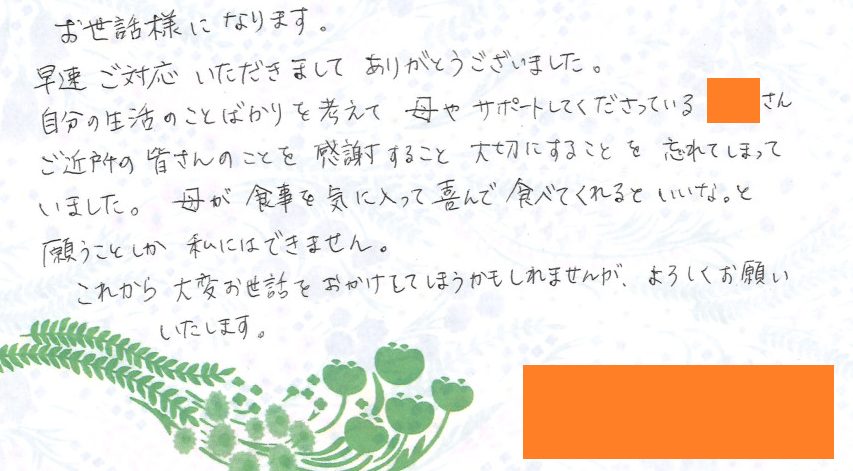 お世話様になります。
早速 ご対応 いただきまして ありがとうございました。
自分の生活のことばかりを考えて 母や サポートしてくださっている さん
ご近所の皆さんのことを 感謝すること 大切にすること を 忘れてしまって
いました。 母が 食事を 気に入って喜んで 食べてくれると いいな。と
願うことしか 私にはできません。
これから 大変お世話を おかけしてしまうかもしれませんが、よろしくお願い
いたします。